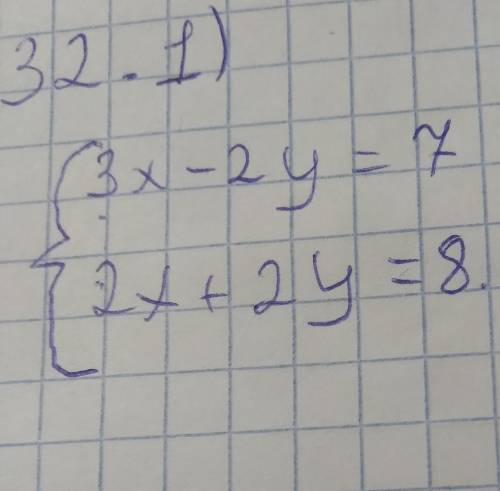 32. 1)
3x - 2y = 7
2x + 2y = 8.